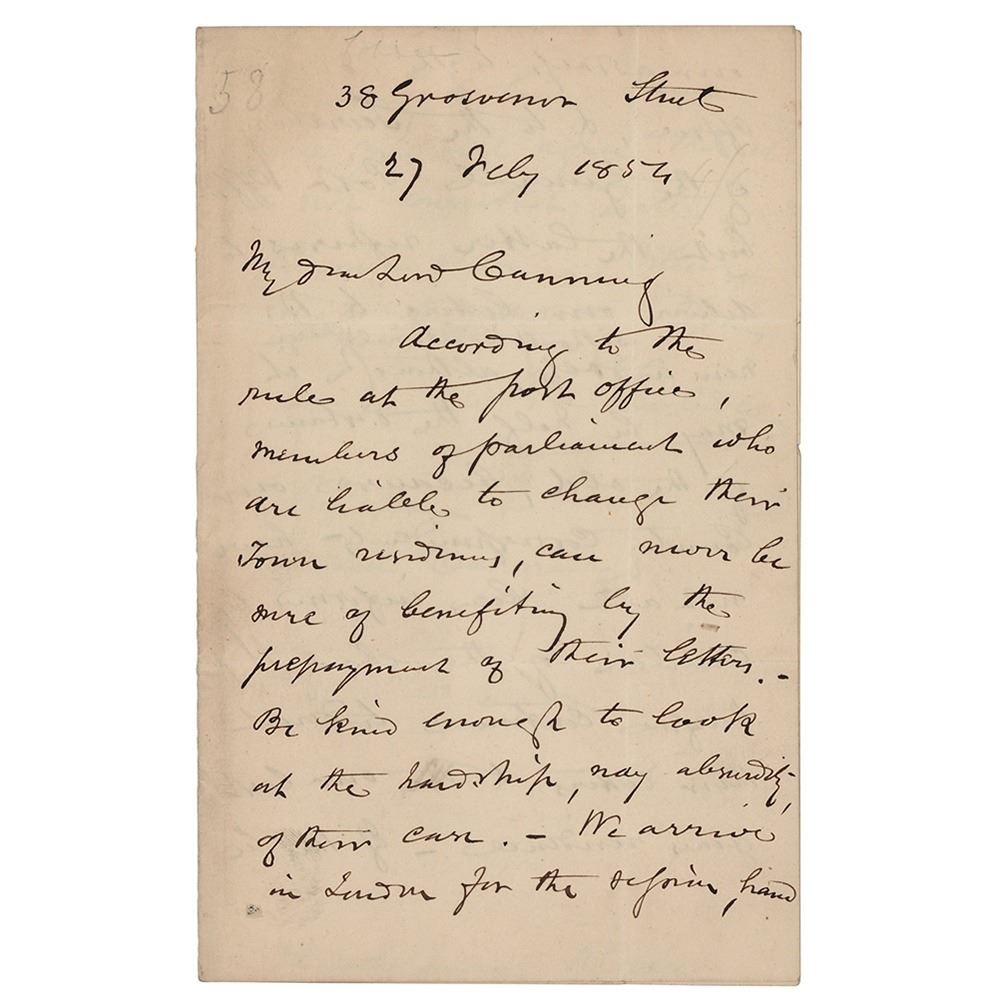 58
38 Grosvenor Street
27 Feby 1854
My dear Lord Canning
According to the
rules at the post office,
members of parliament who
are liable to change their
Town residences, can never be
sure of benefiting by the
prepayment of their letters. -
Be kind enough to look
at the hardship, nay absurdity,
of their case. - We arrive
in London for the session,